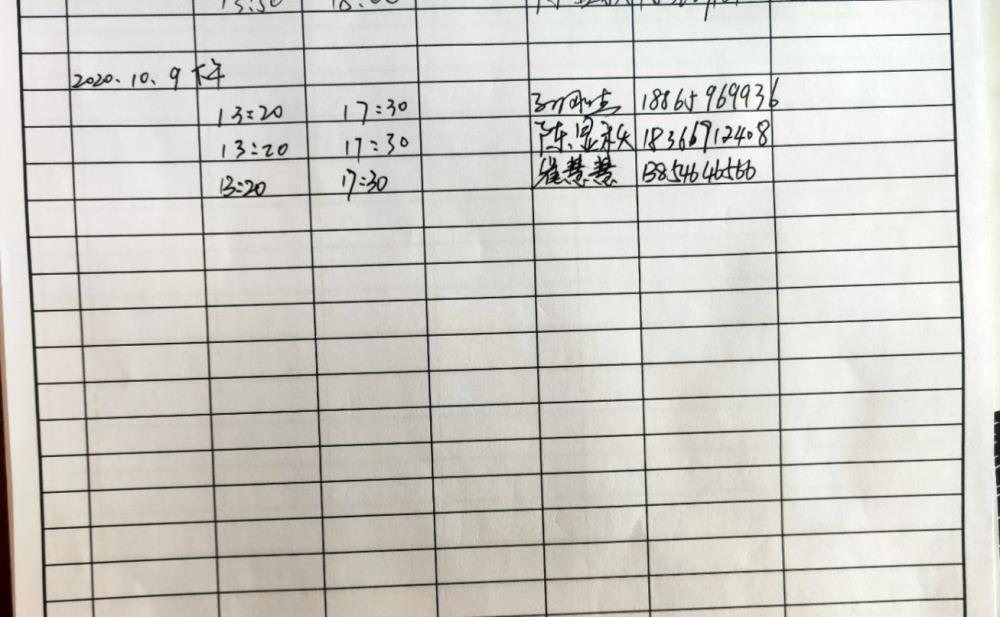 2020.10.9 下午
13:20 17:30 18865969936
13:20 17:30 陈显 18366712408
13:20 17:30 崔慧慧 13854646566